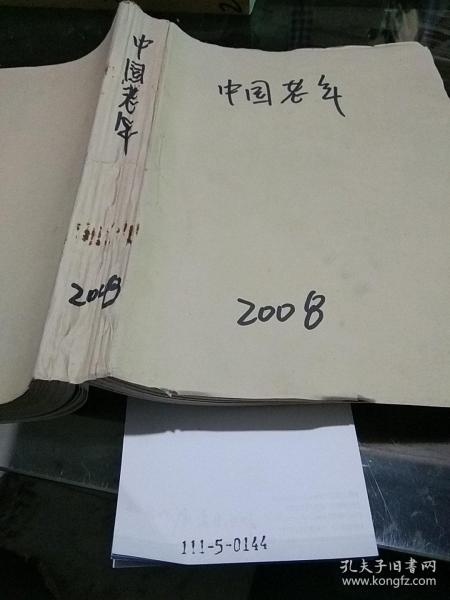 中国老年
2008
中国老年
2008
111-5-0144
孔夫子旧书网
www.kongfz.com